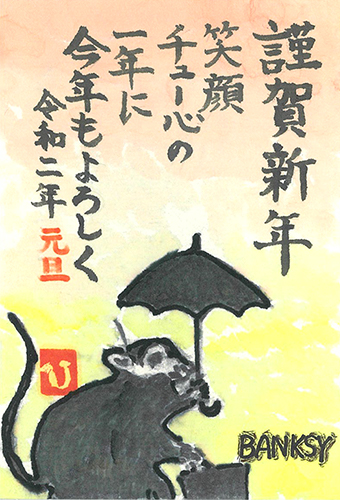 謹賀新年
笑顔
チュー心の
一年に
今年もよろしく
令和二年 元旦
ひ
BANKSY